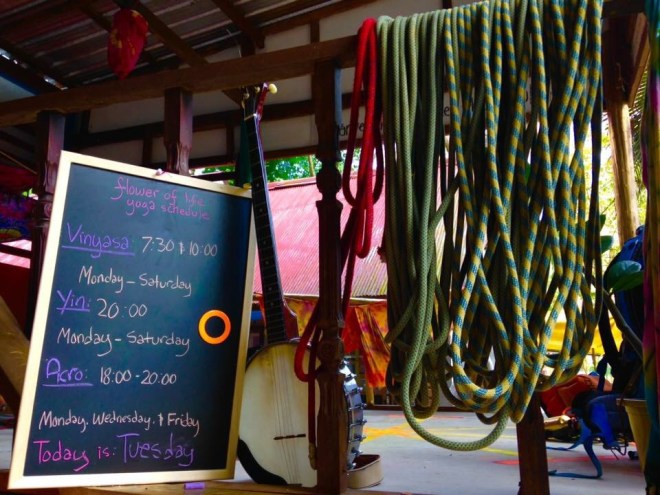 flower of life
yoga schedule
Vinyasa: 7:30 & 10:00
Monday - Saturday
Yin: 20:00
Monday - Saturday
Acro: 18:00 - 20:00
Monday, Wednesday, & Friday
Today is: Tuesday